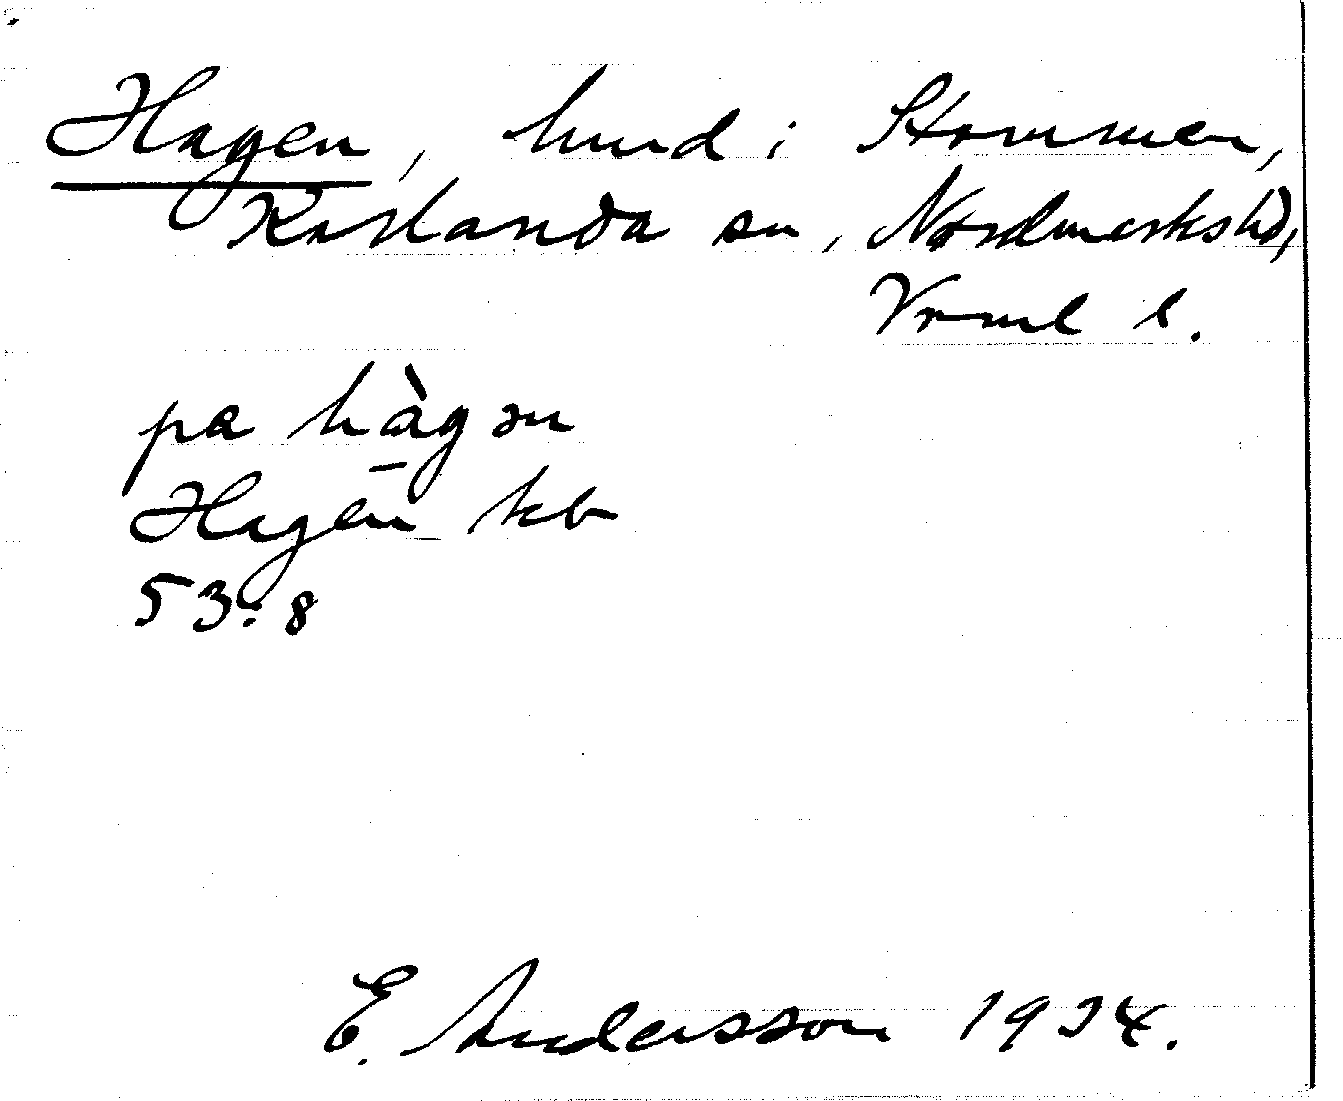 Hagen, hmd i Stommen,
Karlanda sn, Nordmarks hd,
Vrml l.
pa hàg ən
Hagen kb
53:8
E. Andersson 1924.